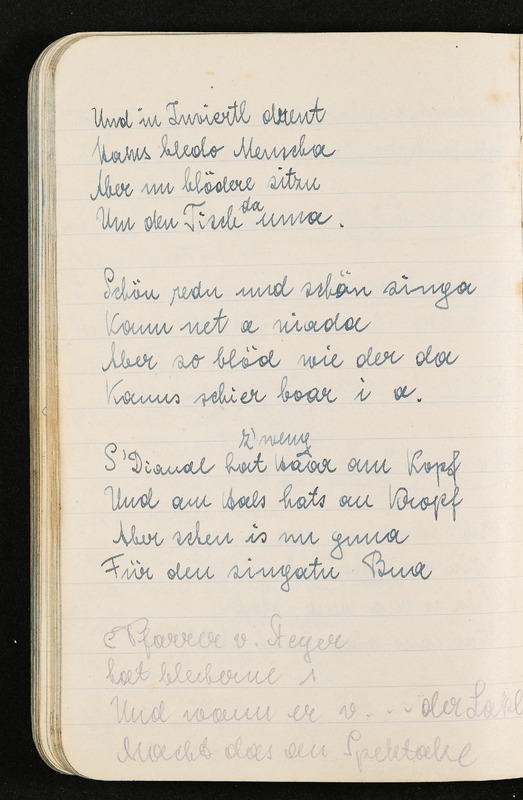 Und in Inviertl drent
Hams bledo Menscha
Aber nu blödere sitzn
Um den Tisch da uma.
Schön redn und schön singa
Kann net a niada
Aber so blöd wie der da
Kanns schier boar i a.
S'Diandl hat z'weng Haar am Kopf
Und am Hals hats an Kropf
Aber schen is nu gnua
Für den singatn Bua
Pfarrer v. Steyer
hat bleiberne
Und wann er v. . . der
Macht das an Spektakl